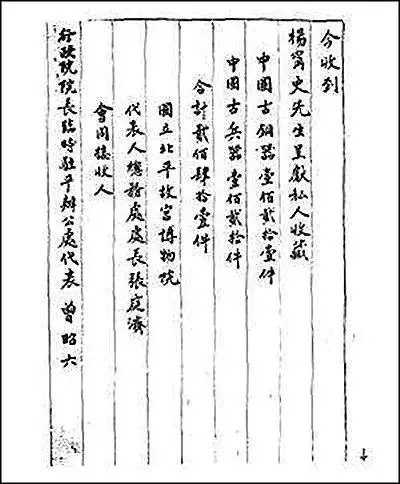 今收到
楊甯史先生呈獻私人收藏
中國古銅器壹佰貳拾壹件
中國古兵器壹佰貳拾件
合計貳佰肆拾壹件
國立北平故宮博物院
代表人總務處處長張庭濟
會同接收人
行政院院長臨時駐平辦公處代表 曾昭六